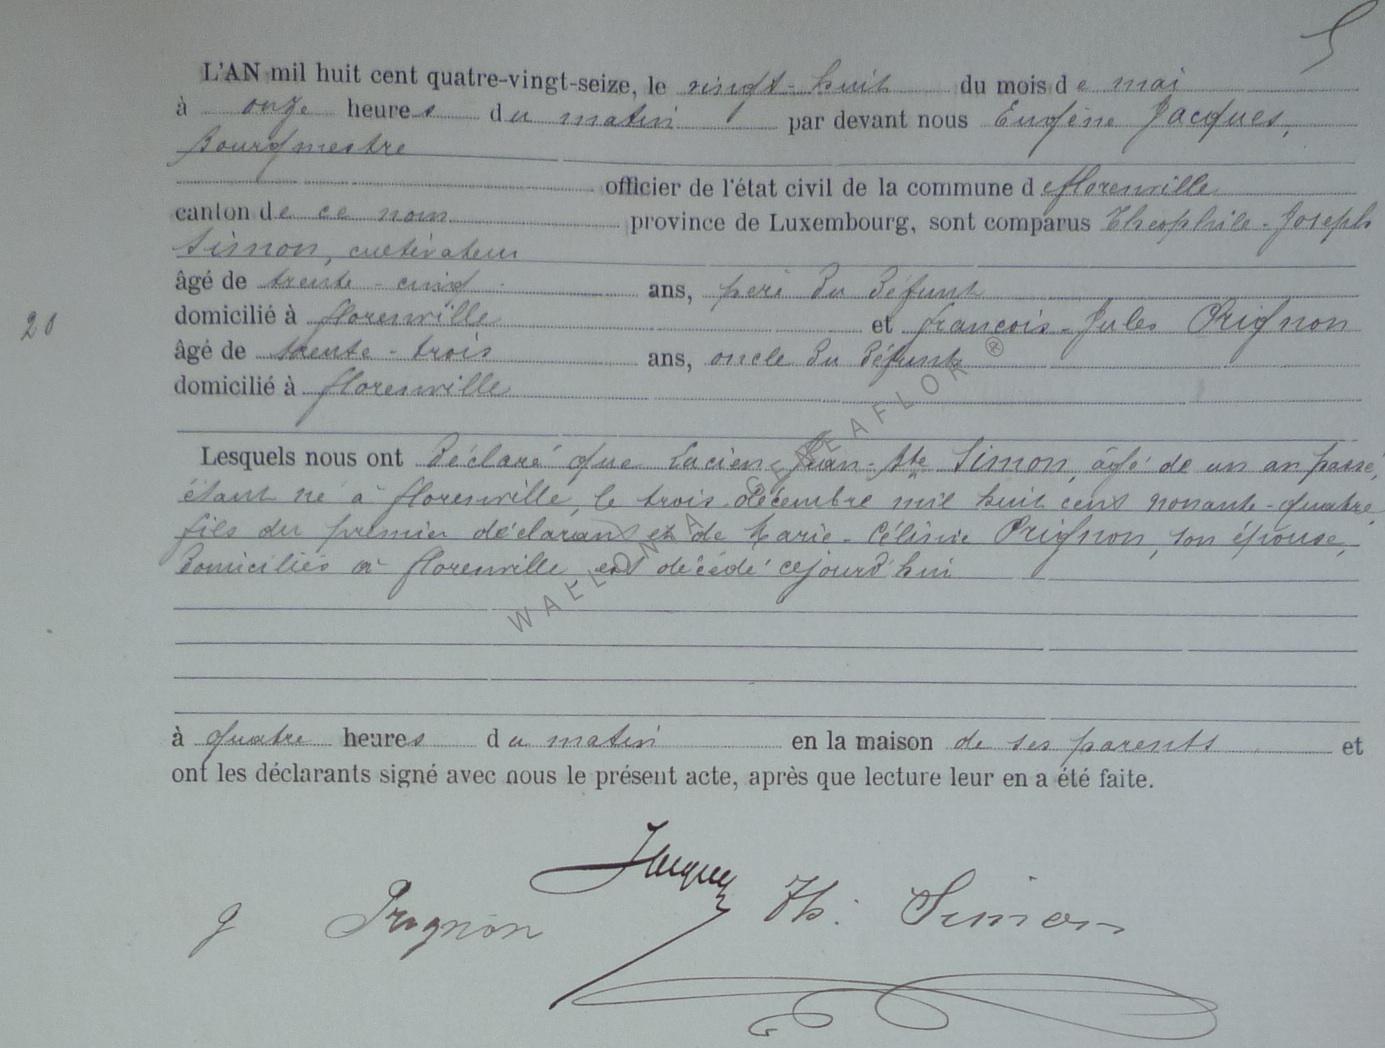 5
L'AN mil huit cent quatre-vingt-seize, le vingt-huit du mois de mai
à onze heures du matin par devant nous Eugène Jacques,
Bourgmestre
officier de l'état civil de la commune de florenville
canton de ce nom province de Luxembourg, sont comparus Théophile-Joseph
Simon, cultivateur
âgé de trente-cinq ans, père du défunt
domicilié à florenville et françois-Jules Prignon
âgé de trente-trois ans, oncle du défunt
domicilié à florenville
Lesquels nous ont déclaré que Lucien-Jean-Bte Simon, âgé de un an passé,
étant né à florenville, le trois décembre mil huit cent nonante-quatre,
fils du premier déclarant et de Marie-Célinie Prignon, son épouse,
domiciliés à florenville est décédé cejourd'hui
à quatre heures du matin en la maison de ses parents et
ont les déclarants signé avec nous le présent acte, après que lecture leur en a été faite.
Jacques
Prignon Th. Simon
WAELONIA GENEAFLOR ®